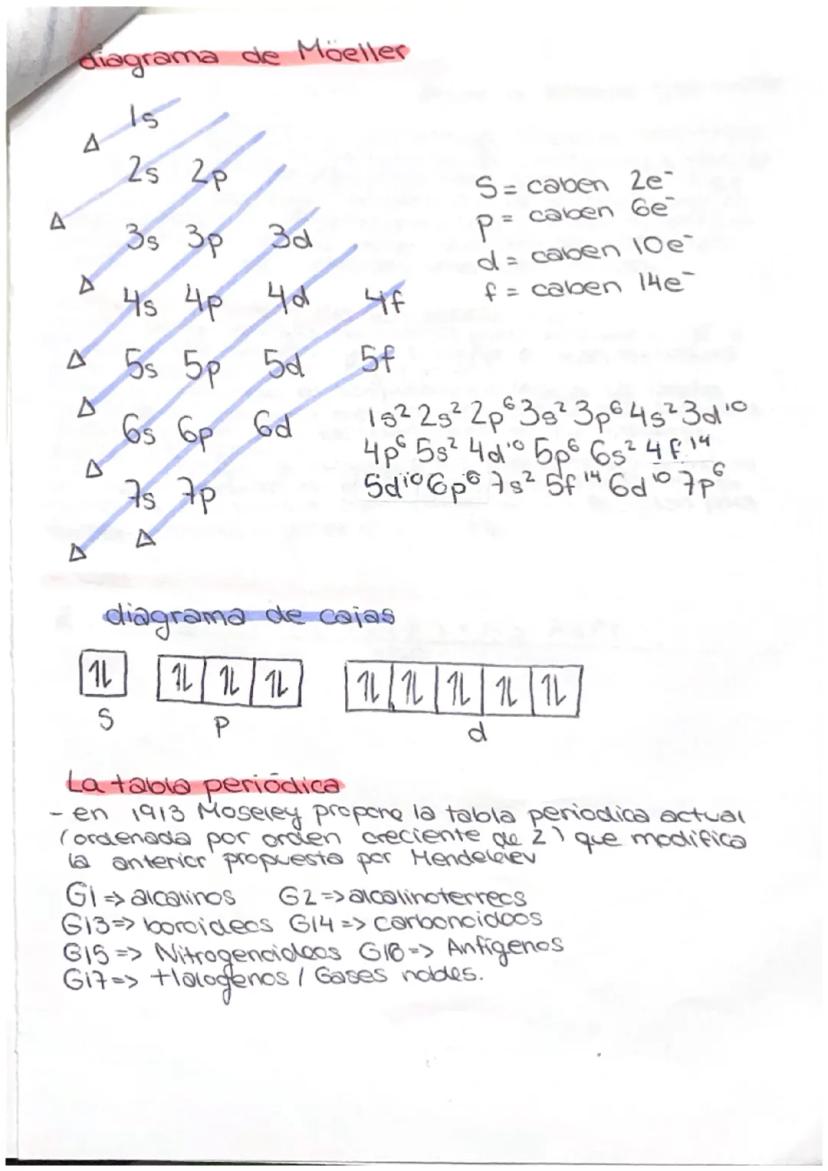 diagrama de Möeller
1s
2s 2p
3s 3p 3d
4s 4p 4d 4f
5s 5p 5d 5f
6s 6p 6d
7s 7p
S = caben 2e⁻
p = caben 6e⁻
d = caben 10e⁻
f = caben 14e⁻
1s² 2s² 2p⁶ 3s² 3p⁶ 4s² 3d¹⁰
4p⁶ 5s² 4d¹⁰ 5p⁶ 6s² 4f¹⁴
5d¹⁰ 6p⁶ 7s² 5f¹⁴ 6d¹⁰ 7p⁶
diagrama de cajas
S p d
La tabla periódica
- en 1913 Moseley propone la tabla periodica actual
(ordenada por orden creciente de Z) que modifica
la anterior propuesta por Mendeleiev
G1 => alcalinos G2 => alcalinoterreos
G13 => boroideos G14 => carbonoideos
G15 => Nitrogenoideos G16 => Anfígenos
G17 => Halogenos / Gases nobles.